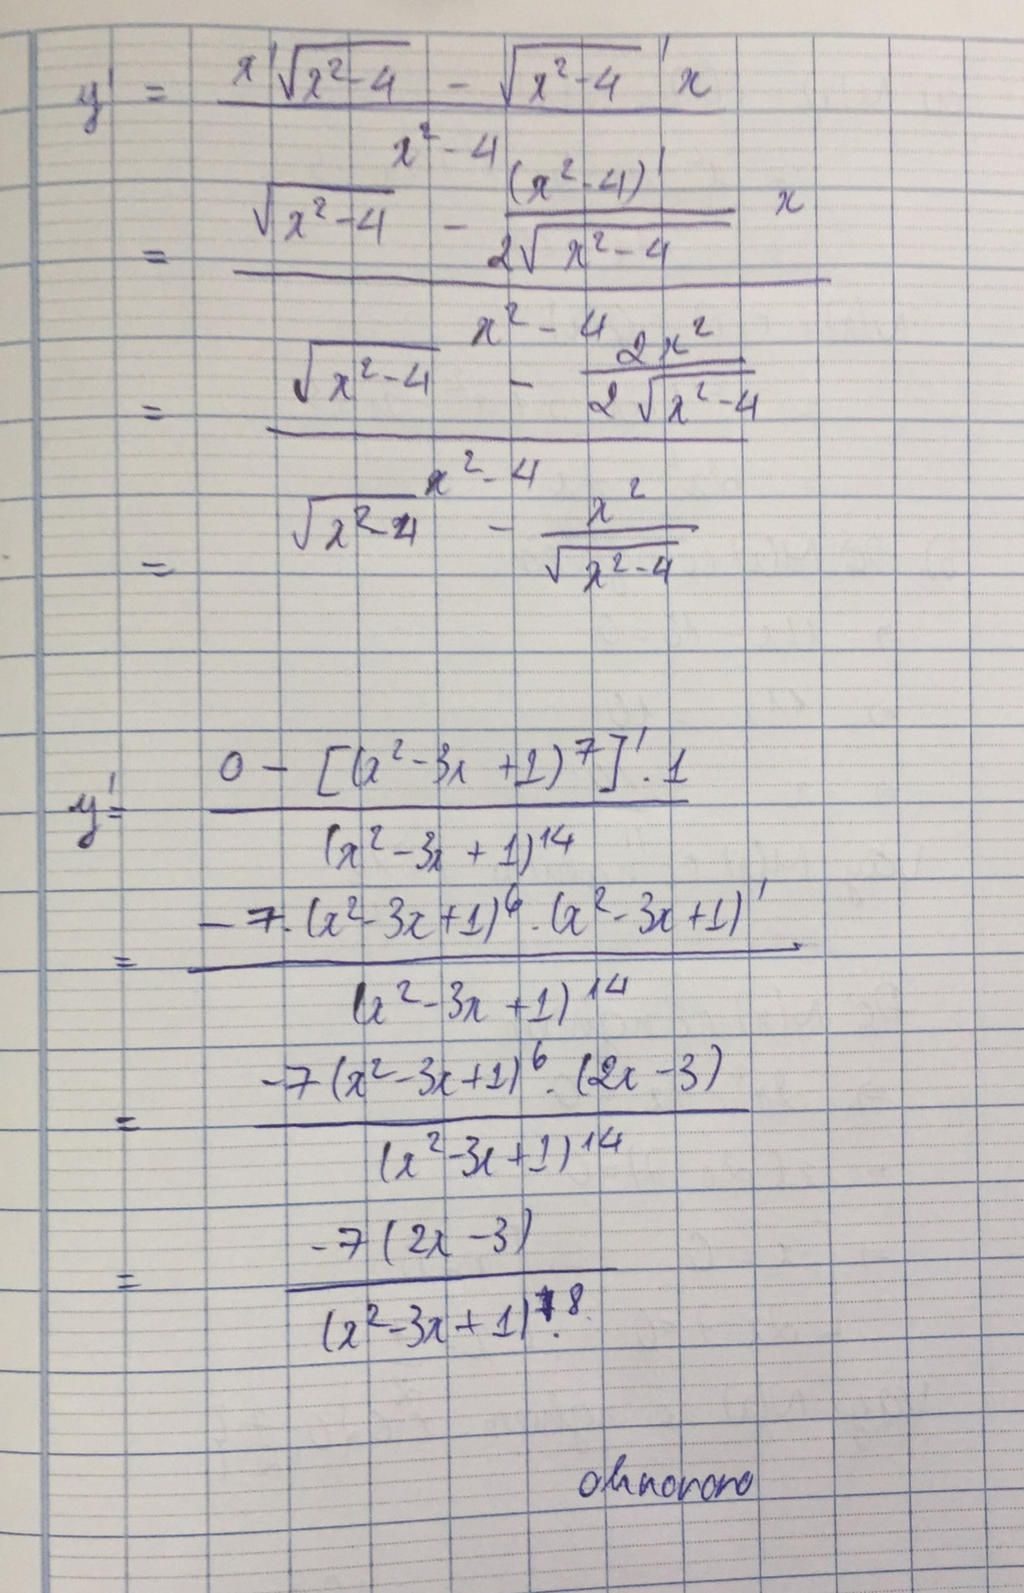 y' = x'√(x²-4) - √(x²-4)' x
x² - 4
= √(x²-4) - (x²-4)' / 2√(x²-4) x
x² - 4
= √(x²-4) - 2x² / 2√(x²-4)
x² - 4
= √(x²-4) - x² / √(x²-4)
y' = 0 - [(x²-3x+1)⁷]' . 1
(x²-3x+1)¹⁴
= -7.(x²-3x+1)⁶.(x²-3x+1)'
(x²-3x+1)¹⁴
= -7(x²-3x+1)⁶.(2x-3)
(x²-3x+1)¹⁴
= -7(2x-3)
(x²-3x+1)⁸.